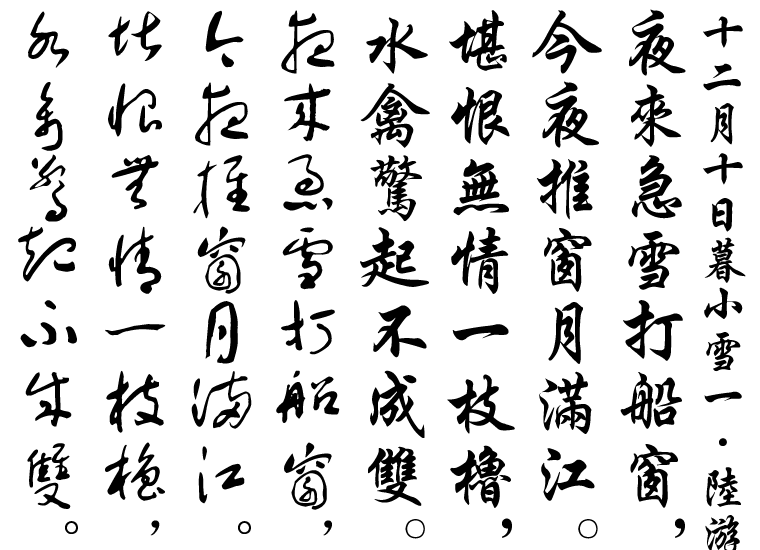 十二月十日暮小雪一・陸游
夜來急雪打船窗，
今夜推窗月滿江。
堪恨無情一枝櫓，
水禽驚起不成雙。
夜來急雪打船窗，
今夜推窗月滿江。
堪恨無情一枝櫓，
水禽驚起不成雙。